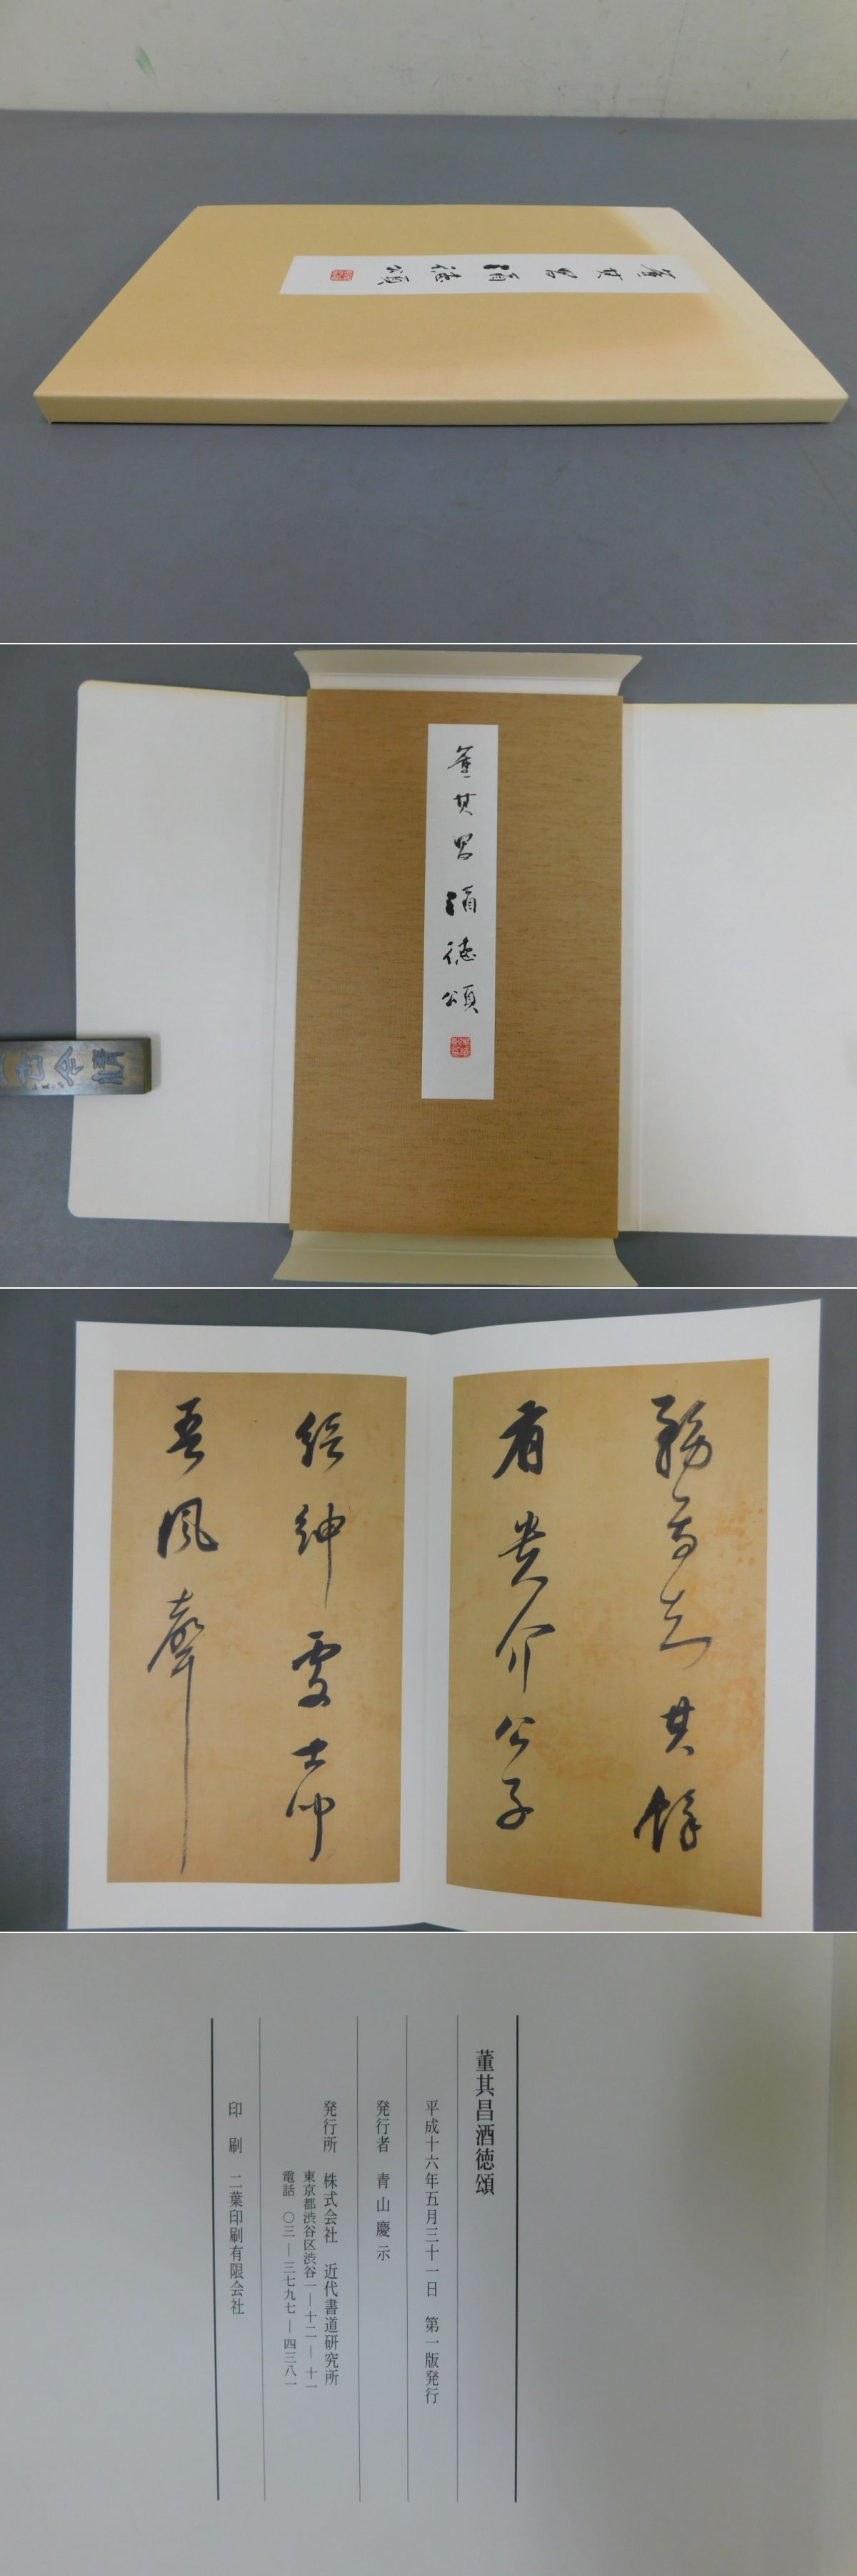 董其昌酒徳頌
董其昌酒徳頌
古今情
務焉知其餘
有貴介公子
縉紳處士聞
吾風聲
董其昌酒徳頌
平成十六年五月三十一日 第一版発行
発行者 青山慶示
発行所 株式会社 近代書道研究所
東京都渋谷区渋谷一―十二―十一
電話 〇三―三七九七―四三八一
印刷 二葉印刷有限会社